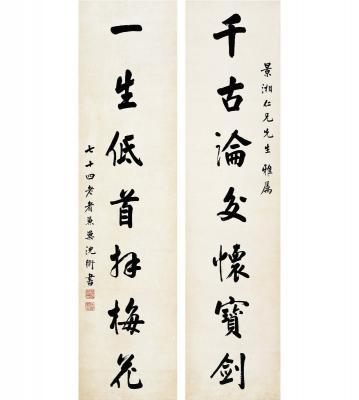 景湘仁兄先生雅属
千古論交懷寶劍
一生低首拜梅花
七十四老者
沈衛書